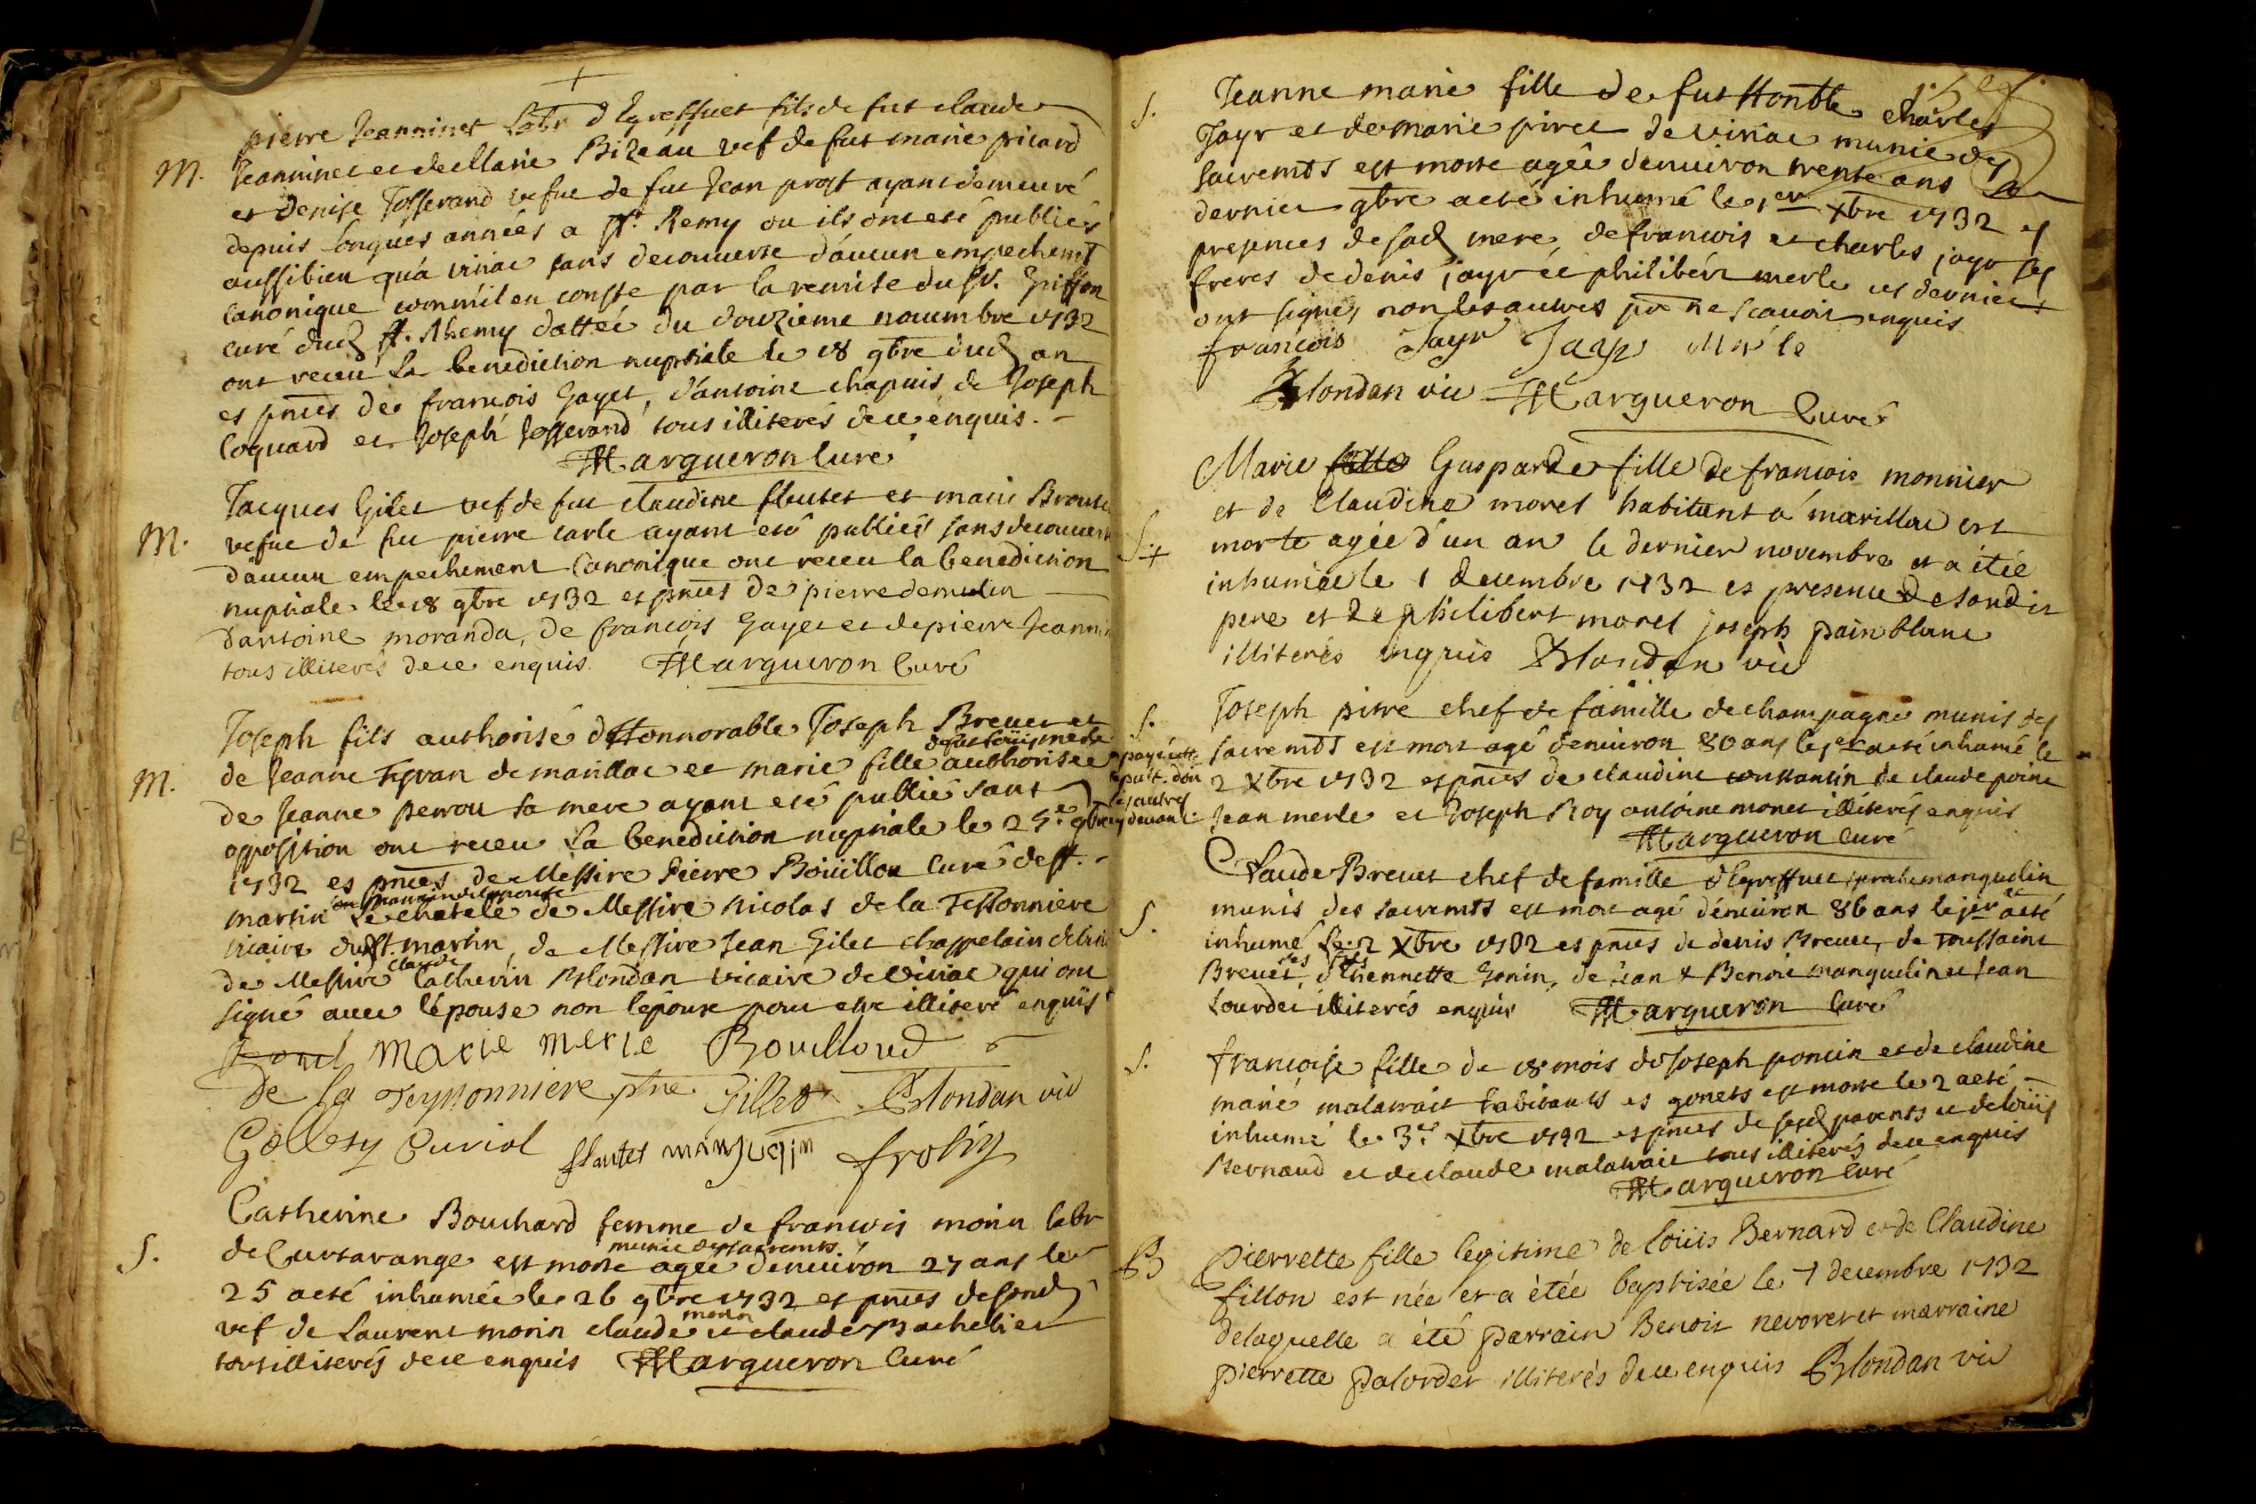 pierre Jeanninet Labr d'Egreffuet fils de fut claude
M. Jeanninet et de Marie Bizeau vef de fut marie pricard
et Denise Josserand vefue de fut Jean prost ayant demeuré
depuis longues années a st. Remy ou ils ont eté publiés
aussibien qu'a viriac sans decouverte d'aucun empechemt
canonique comm'il en conste par la remise du sr. griffon
curé dud st. Rhemy dattée du douzieme nouembre 1732
ont receu la benediction nuptiale le 18 9bre dud an
es pnces de francois Gayet, d'antoine chapuis de Joseph
coquard et Joseph Josserand tous illiterés de ce enquis.
Margueron Curé
Jacques Gilet vef de fut claudine flutet et marie
M. vefue de fut pierre carle ayant eté publiés sans decouverte
d'aucun empechement canonique ont receu la benediction
nuptiale le 18 9bre 1732 es pnces de pierre demulin
d'antoine moranda, de francois Gayet et de pierre
tous illiterés de ce enquis. Margueron Curé
Joseph fils authorisé d'Honnorable Joseph Breuet et
de fut Loüis merle
M. de Jeanne de marillac et marie fille authorisée
de Jeanne perrou sa mere ayant eté publié sans
opposition ont receu la benediction nuptiale le 25e 9bre
1732 es pnces de Messire Pierre Boüillou curé de st.
martin le chatele de Messire nicolas de la Teyssonniere
vicaire dud st. martin, de Messire Jean Gilet chappelain
claude
de Messire Catherin Blondan vicaire de viriac qui ont
signé avec l'épouse non l'epoux pour etre illiteré enquis
marie merle Bouilloud
De la Teyssonniere ptre Gillet Blondan vic
Curiol flautet manjuqin frobin
Catherine Bouchard femme de francois morin labr
munie des sacremts
S. de Curtarange est morte agée d'enuiron 27 ans le
25 a eté inhumée le 26 9bre 1732 es pnces de sond
morin
vef de Laurent morin claude et claude Bachelier
tous illiterés de ce enquis Margueron Curé
S. Jeanne marie fille de fut Honble charles
Jayr et de marie piret de viriac munie des
sacremts est morte agée d'enuiron trente ans le
dernier 9bre a eté inhumé le 1er Xbre 1732 es
presences de sad mere, de francois et charles jayr ses
freres de denis jayr et philibert merle ces derniers
ont signé, non les autres pr ne scavoir enquis
francois Jayr Jayr Merle
Blondan vic Margueron Curé
Marie Gasparde fille de francois monnier
et de Claudine morel habitant a marillac est
S. + morte agée d'un an le dernier novembre et a étée
inhumée le 1 decembre 1732 es presence de sondit
pere et de philibert morel joseph pain blanc
illiterés enquis Blondan vic
S. Joseph pitre chef de famille de champagne munis des
sacremts est mort agé d'enuiron 80 ans le 1er a eté inhumé le
2 Xbre 1732 es pnces de claudine constantin de claude poine
Jean merle et Joseph Roy antoine monet illiterés enquis
Margueron Curé
Claude Breuet chef de famille d'Egreffuet
S. munis des sacremts est mort agé d'enuiron 86 ans le 1er a eté
inhumé le 2 Xbre 1732 es pnces de denis Breuet, de Toussaint
Breuet, d'Ehiennette Gonin, de Jean & Benoit manguelin et Jean
Lourdei illiterés enquis Margueron Curé
S. francoise fille de 18 mois de Joseph poncin et de claudine
marie malatrait habitants es gonets est morte le 2 a eté
inhumé le 3e Xbre 1732 es pnces de sesd parents et de Loüis
Bernaud et de claude malatrait tous illiterés de ce enquis
Margueron Curé
B Pierrette fille legitime de Loüis Bernard et de Claudine
fillon est née et a étée baptisée le 7 decembre 1732
de laquelle a été parrain Benoit nevoret et marraine
pierrette palordet illiterés de ce enquis Blondan vic